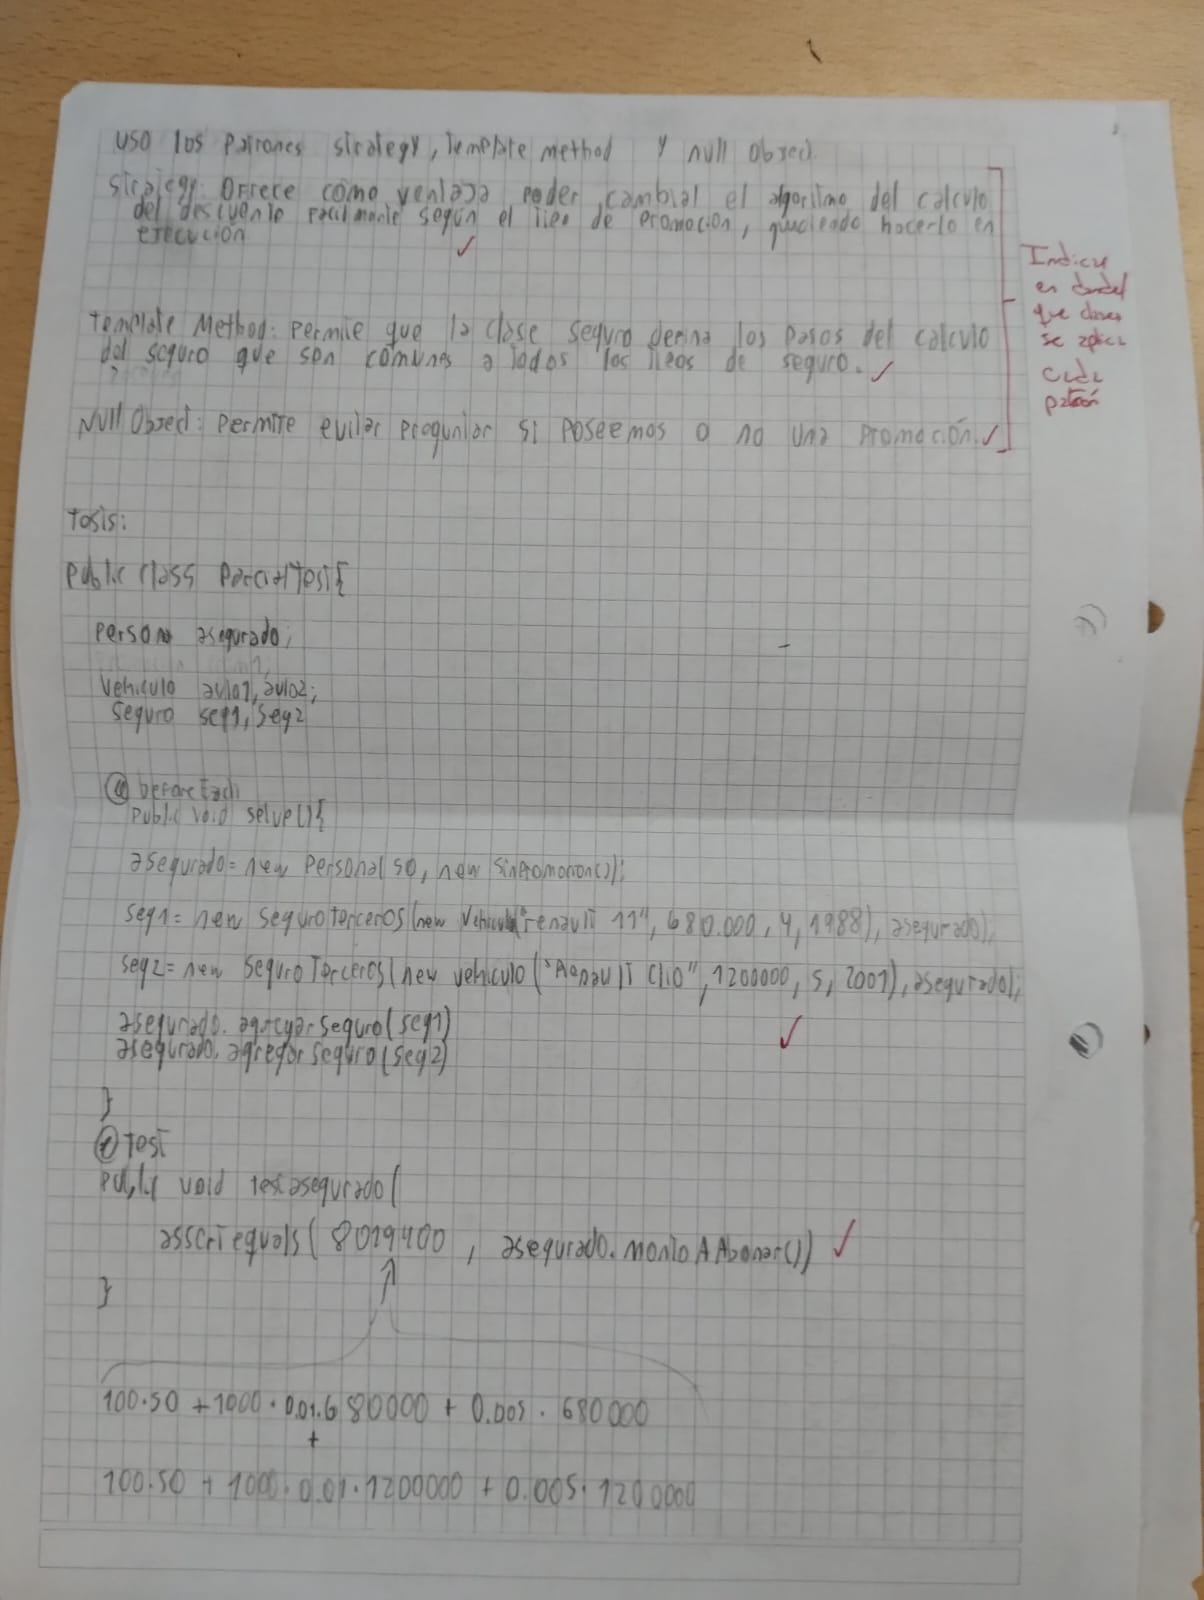 uso los Patrones strategy, Template method y null Object.
strategy: Ofrece como ventaja poder cambial el algoritmo del calculo
del descuento facilmente según el tipo de promoción, pudiendo hacerlo en
ejecución
Template Method: permite que la clase seguro defina los pasos del calculo
del seguro que son comunes a todos los tipos de seguro.
Null Object: permite evitar preguntar si poseemos o no una promoción.
Indicar
en donde/
que clases
se aplica
cada
patrón
Tests:
public class ParcialTest{
Persona asegurado;
Vehiculo auto1, auto2;
Seguro seg1, seg2
@beforeEach
public void setup(){
asegurado = new Persona( 50, new sinPromocion());
seg1 = new seguroTerceros(new Vehiculo("renault 11", 680.000, 4, 1988), asegurado);
seg2 = new seguroTerceros(new vehiculo("Renault Clio", 1200000, 5, 2001), asegurado);
asegurado.agregarseguro(seg1)
asegurado.agregarseguro(seg2)
}
@Test
public void testasegurado(
assertequals( 8019400 , asegurado.montoAAbonar())
}
100.50 + 1000 . 0.01.680000 + 0.005 . 680000
+
100.50 + 1000. 0.01.1200000 + 0.005. 1200000